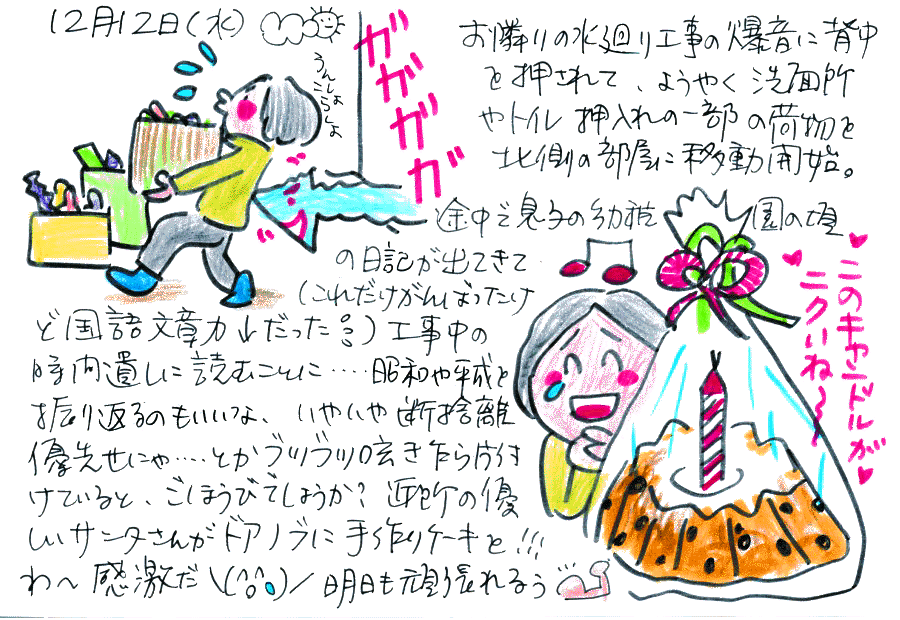 12月12日(水)
うんしょ
こらしょ
ガガガガガ
お隣りの水廻り工事の爆音に背中
を押されて、ようやく洗面所
やトイレ 押入れの一部の荷物を
北側の部屋に移動開始。
途中で息子の幼稚園の頃
の日記が出てきて
(これだけがんばったけ
ど国語文章力↓だった)工事中の
時間潰しに読むことに‥‥昭和や平成を
振り返るのもいいな、いやいや断捨離
優先せにゃ‥‥とかブツブツ呟きながら片付
けていると、ごほうびでしょうか?近所の優
しいサンタさんがドアノブに手作りケーキを!!!
わ〜感激だ\(^o^)/明日も頑張れるぅ
♥このキャンドルが
♥ニクいね〜♥